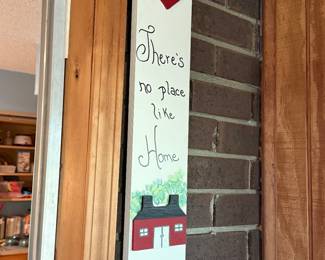 There's
no place
like
Home